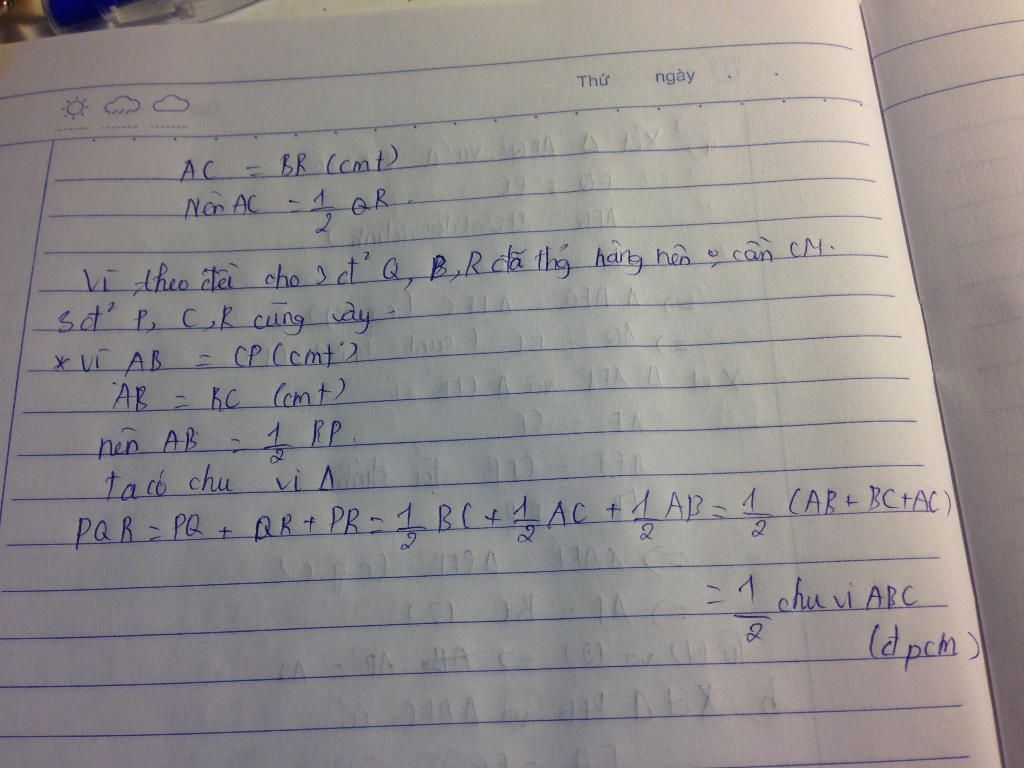 Thứ ngày . .
AC = BR (cmt)
Nên AC = 1/2 QR.
Vì theo đề cho 3 đ² Q, B, R đã thg hàng nên o cần CM.
3 đ² P, C, R cũng vậy.
* Vì AB = CP (cmt)
AB = RC (cmt)
nên AB = 1/2 RP.
ta có chu vi Δ
PQR = PQ + QR + PR = 1/2 BC + 1/2 AC + 1/2 AB = 1/2 (AB + BC + AC)
= 1/2 chu vi ABC
(đpcm)